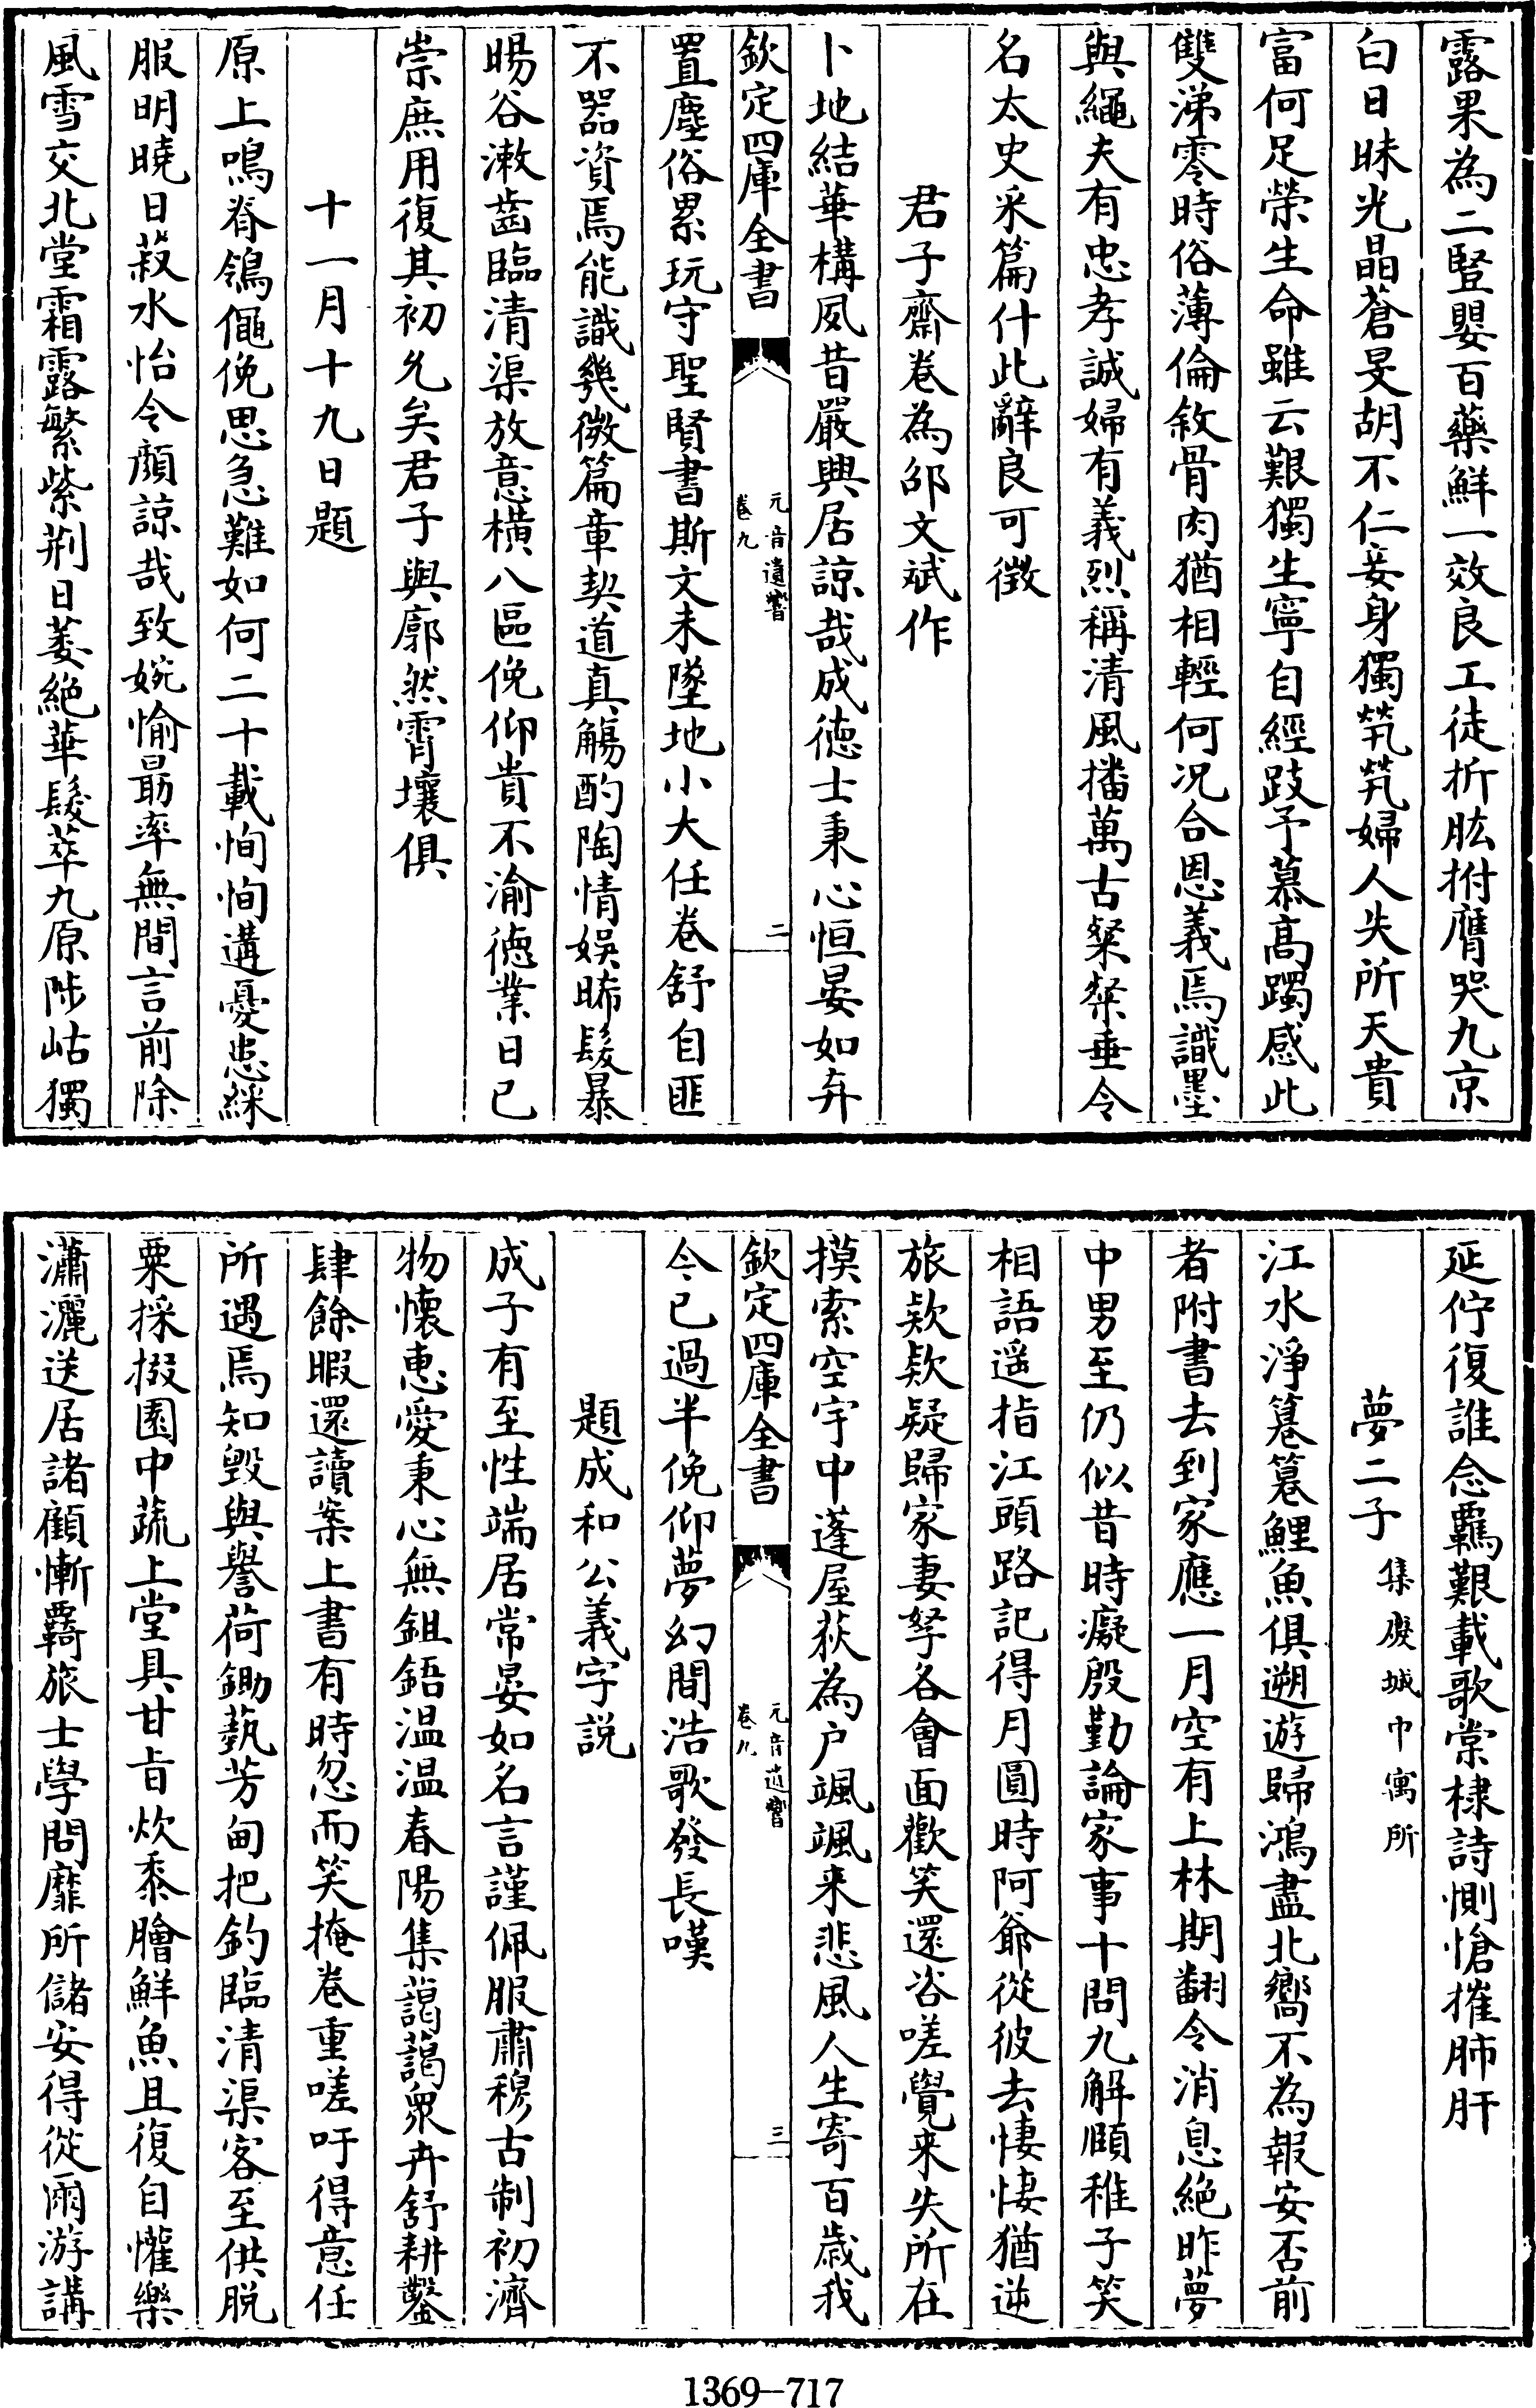 露果為二豎嬰百藥鮮一效良工徒折肱拊膺哭九京
白日昧光晶蒼旻胡不仁妾身獨煢煢婦人失所天貴
富何足榮生命雖云艱獨生寧自經跂予慕高躅感此
雙涕零時俗薄倫敘骨肉猶相輕何況合恩義焉識墨
與繩夫有忠孝誠婦有義烈稱清風播萬古粲粲垂令
名太史采篇什此辭良可徵
君子齋卷為邵文斌作
卜地結華構夙昔嚴興居諒哉成徳士秉心恒晏如弃
欽定四庫全書
元音遺響
卷九
二
置塵俗累玩守聖賢書斯文未墜地小大任卷舒自匪
不器資焉能識幾微篇章契道真觴酌陶情娛晞髮暴
暘谷漱齒臨清渠放意横八區俛仰貴不渝徳業日已
崇庶用復其初允矣君子與廓然霄壤俱
十一月十九日題
原上鳴脊鴒僶俛思急難如何二十載恂恂遘憂患綵
服明曉日菽水怡令顔諒哉致婉愉最率無間言前除
風雪交北堂霜露繁紫荆日萎絶華髮萃九原陟岵獨
延佇復誰念羈艱載歌棠棣詩惻愴摧肺肝
夢二子
集慶城中寓所
江水淨鼊鼊鯉魚俱遡遊歸鴻盡北嚮不為報安否前
者附書去到家應一月空有上林期翻令消息絶昨夢
中男至仍似昔時癡殷勤論家事十問九解頤稚子笑
相語遥指江頭路記得月圓時阿爺從彼去悽悽猶逆
旅欵欵疑歸家妻孥各會面歡笑還咨嗟覺来失所在
摸索空宇中蓬屋荻為户颯颯来悲風人生寄百歳我
欽定四庫全書
元音遺響
卷九
三
今已過半俛仰夢幻間浩歌發長嘆
題成和公義字説
成子有至性端居常晏如名言謹佩服肅穆古制初濟
物懷惠愛秉心無鉏鋙温温春陽集藹藹衆卉舒耕鑿
肆餘暇還讀案上書有時忽而笑掩卷重嗟吁得意任
所遇焉知毁與譽荷鋤蓺芳甸把釣臨清渠客至供脱
粟採掇園中蔬上堂具甘旨炊黍膾鮮魚且復自懽樂
瀟灑送居諸顧慚羇旅士學問靡所儲安得從爾游講
1369—717